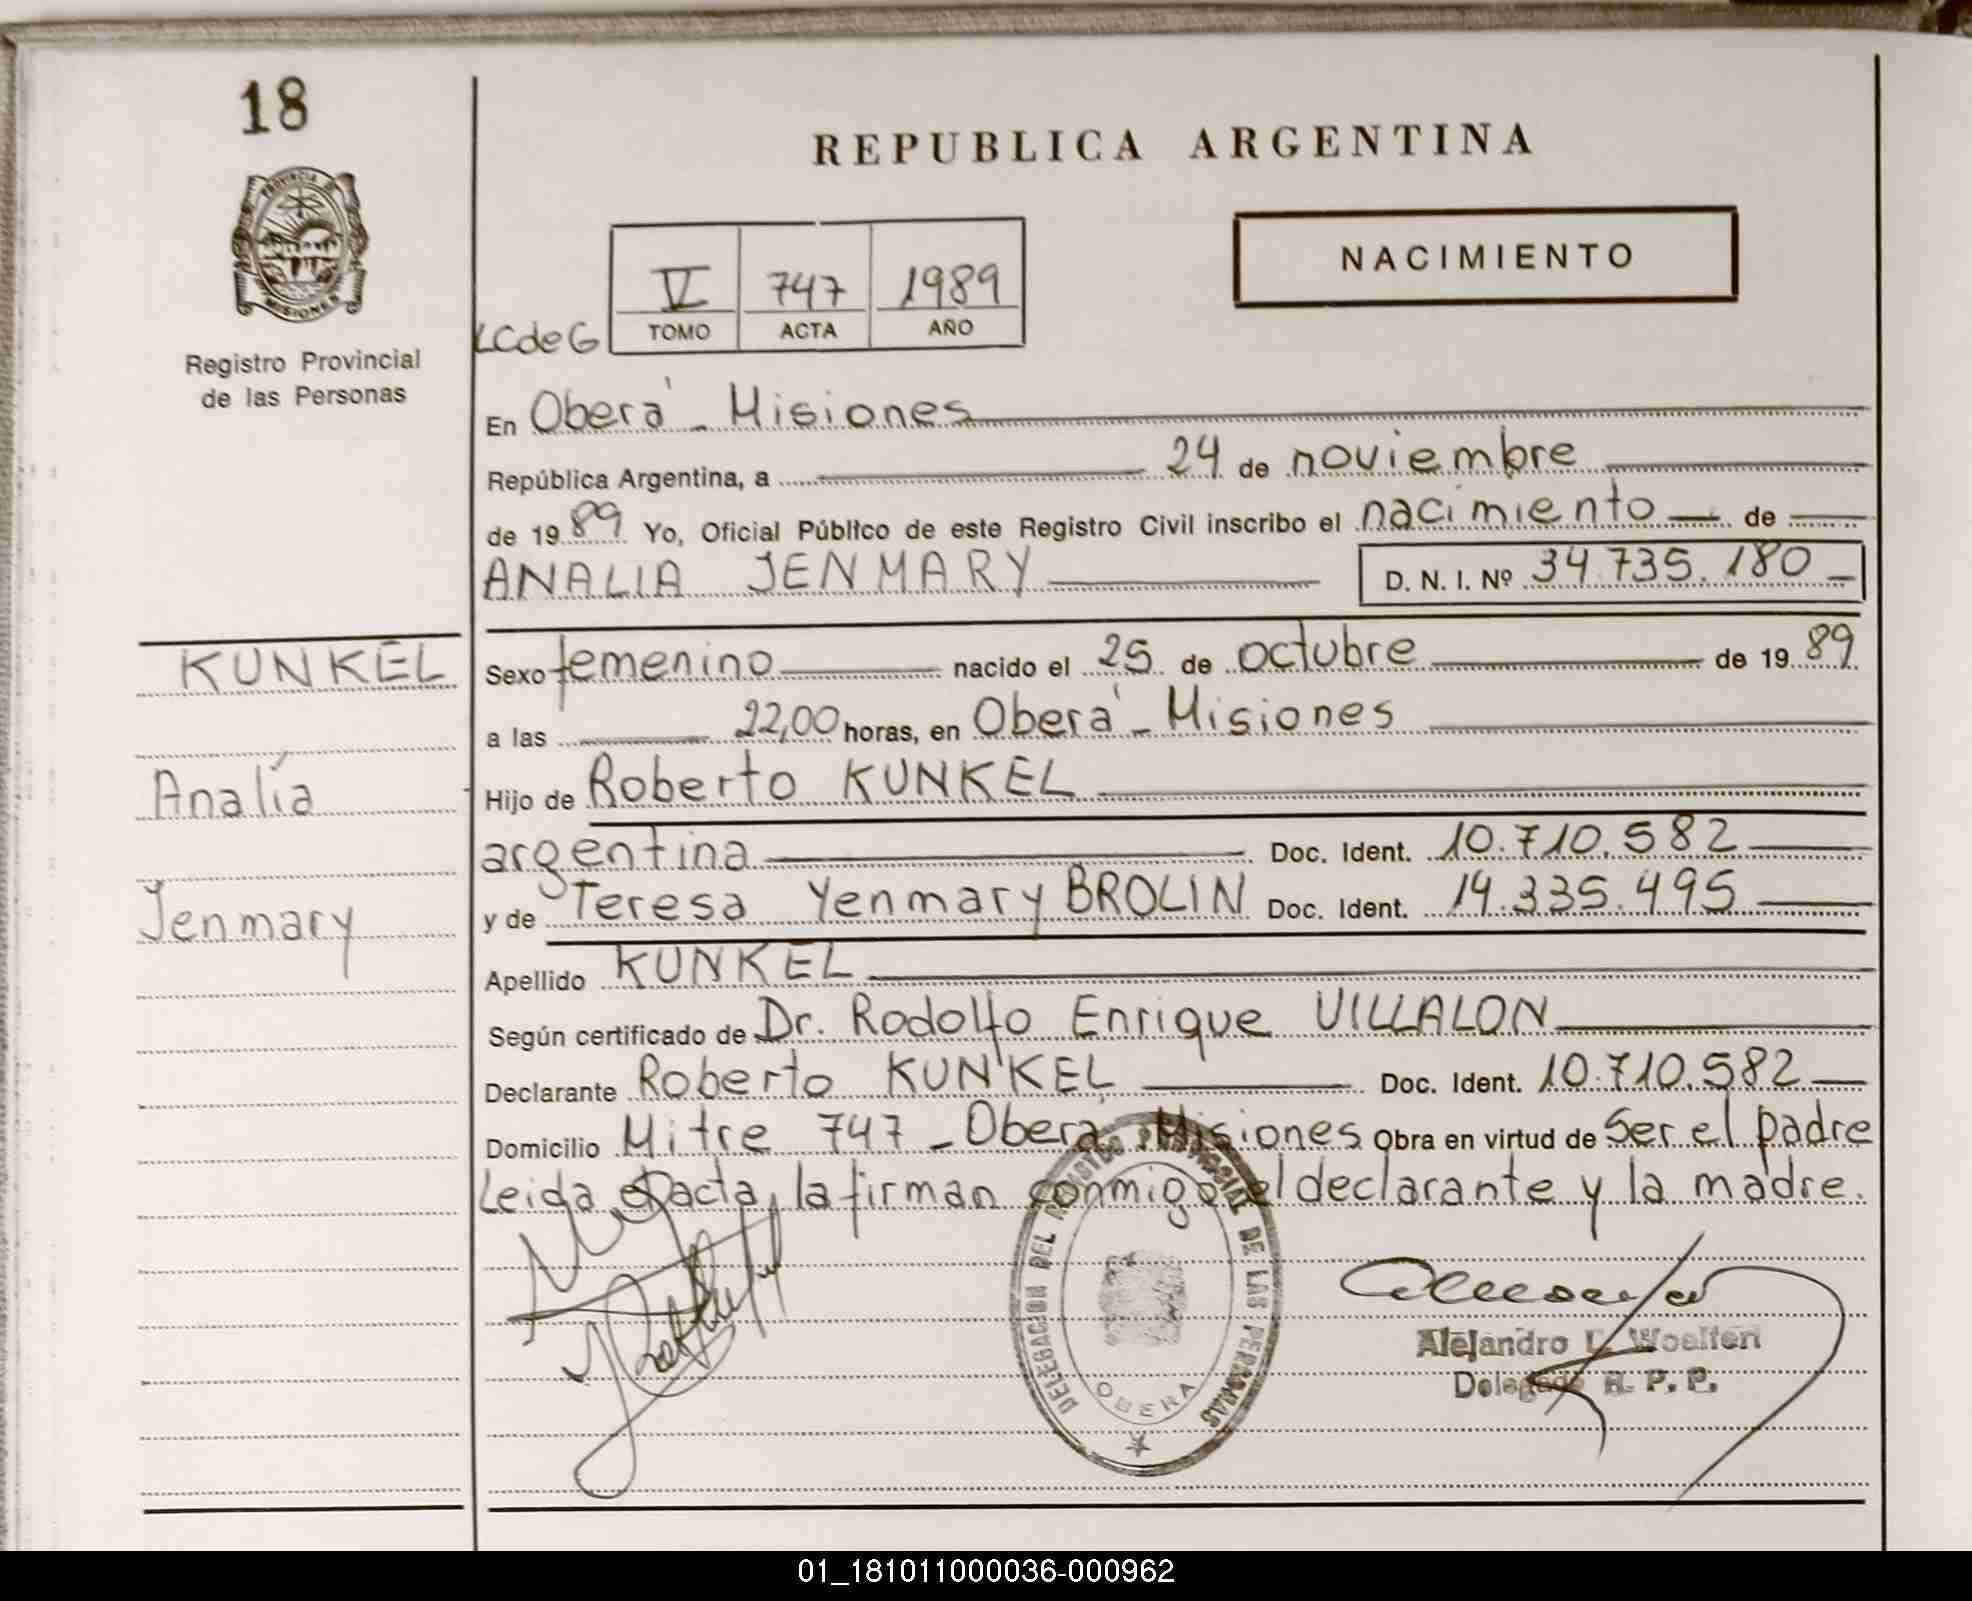 18
PROVINCIA DE
MISIONES
Registro Provincial
de las Personas
REPUBLICA ARGENTINA
NACIMIENTO
V 747 1989
LCdeG TOMO ACTA AÑO
En Oberá - Misiones
República Argentina, a 24 de noviembre
de 1989 Yo, Oficial Público de este Registro Civil inscribo el nacimiento de
ANALIA JENMARY D. N. I. Nº 34.735.180
KUNKEL
Analía
Jenmary
Sexo femenino nacido el 25 de octubre de 1989
a las 22,00 horas, en Oberá - Misiones
Hijo de Roberto KUNKEL
argentina Doc. Ident. 10.710.582
y de Teresa Yenmary BROLIN Doc. Ident. 14.335.495
Apellido KUNKEL
Según certificado de Dr. Rodolfo Enrique VILLALON
Declarante Roberto KUNKEL Doc. Ident. 10.710.582
Domicilio Mitre 747 - Oberá Misiones Obra en virtud de Ser el padre
Leida el acta, la firman conmigo el declarante y la madre.
DELEGACION DEL REGISTRO PROVINCIAL DE LAS PERSONAS
OBERA
Alejandro
Delegado R. P. P.
01_181011000036-000962